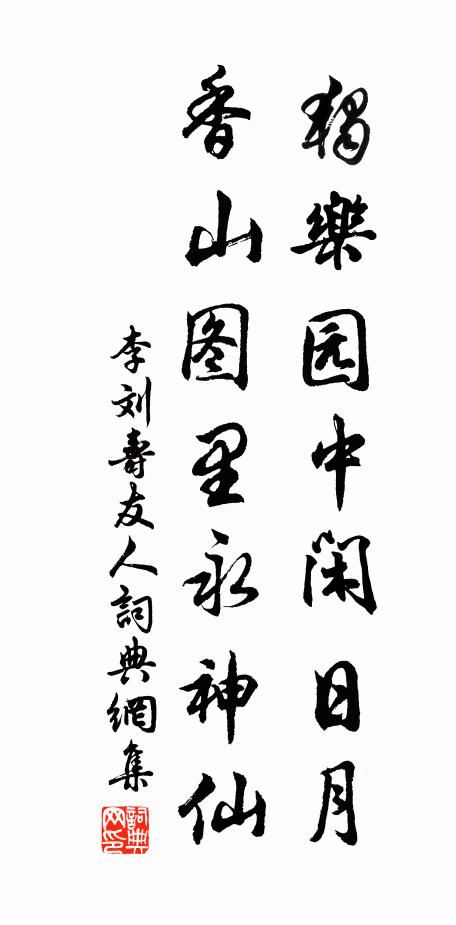 獨樂园中闲日月
香山图里永神仙
李刘壽友人詞典網集
詞典网印